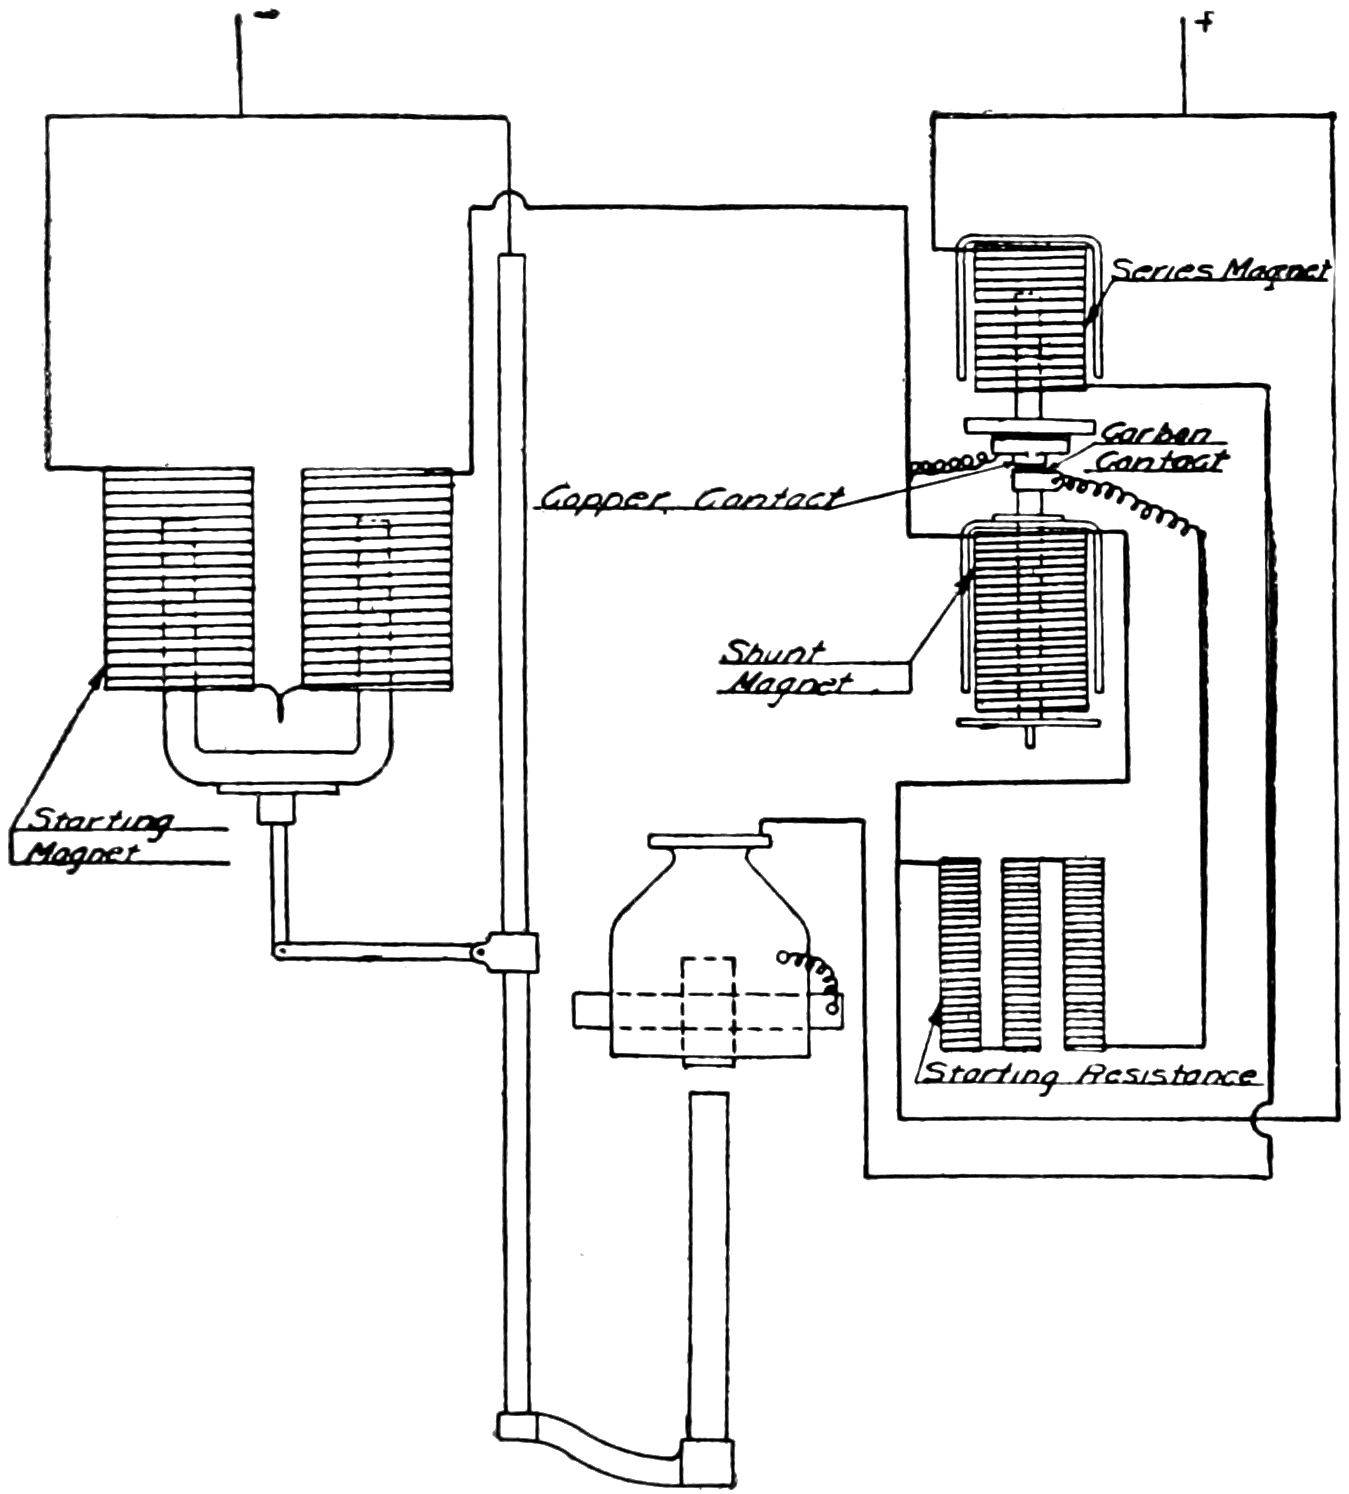 - +
Series Magnet
Carbon
Contact
Copper Contact
Shunt
Magnet
Starting
Magnet
Starting Resistance